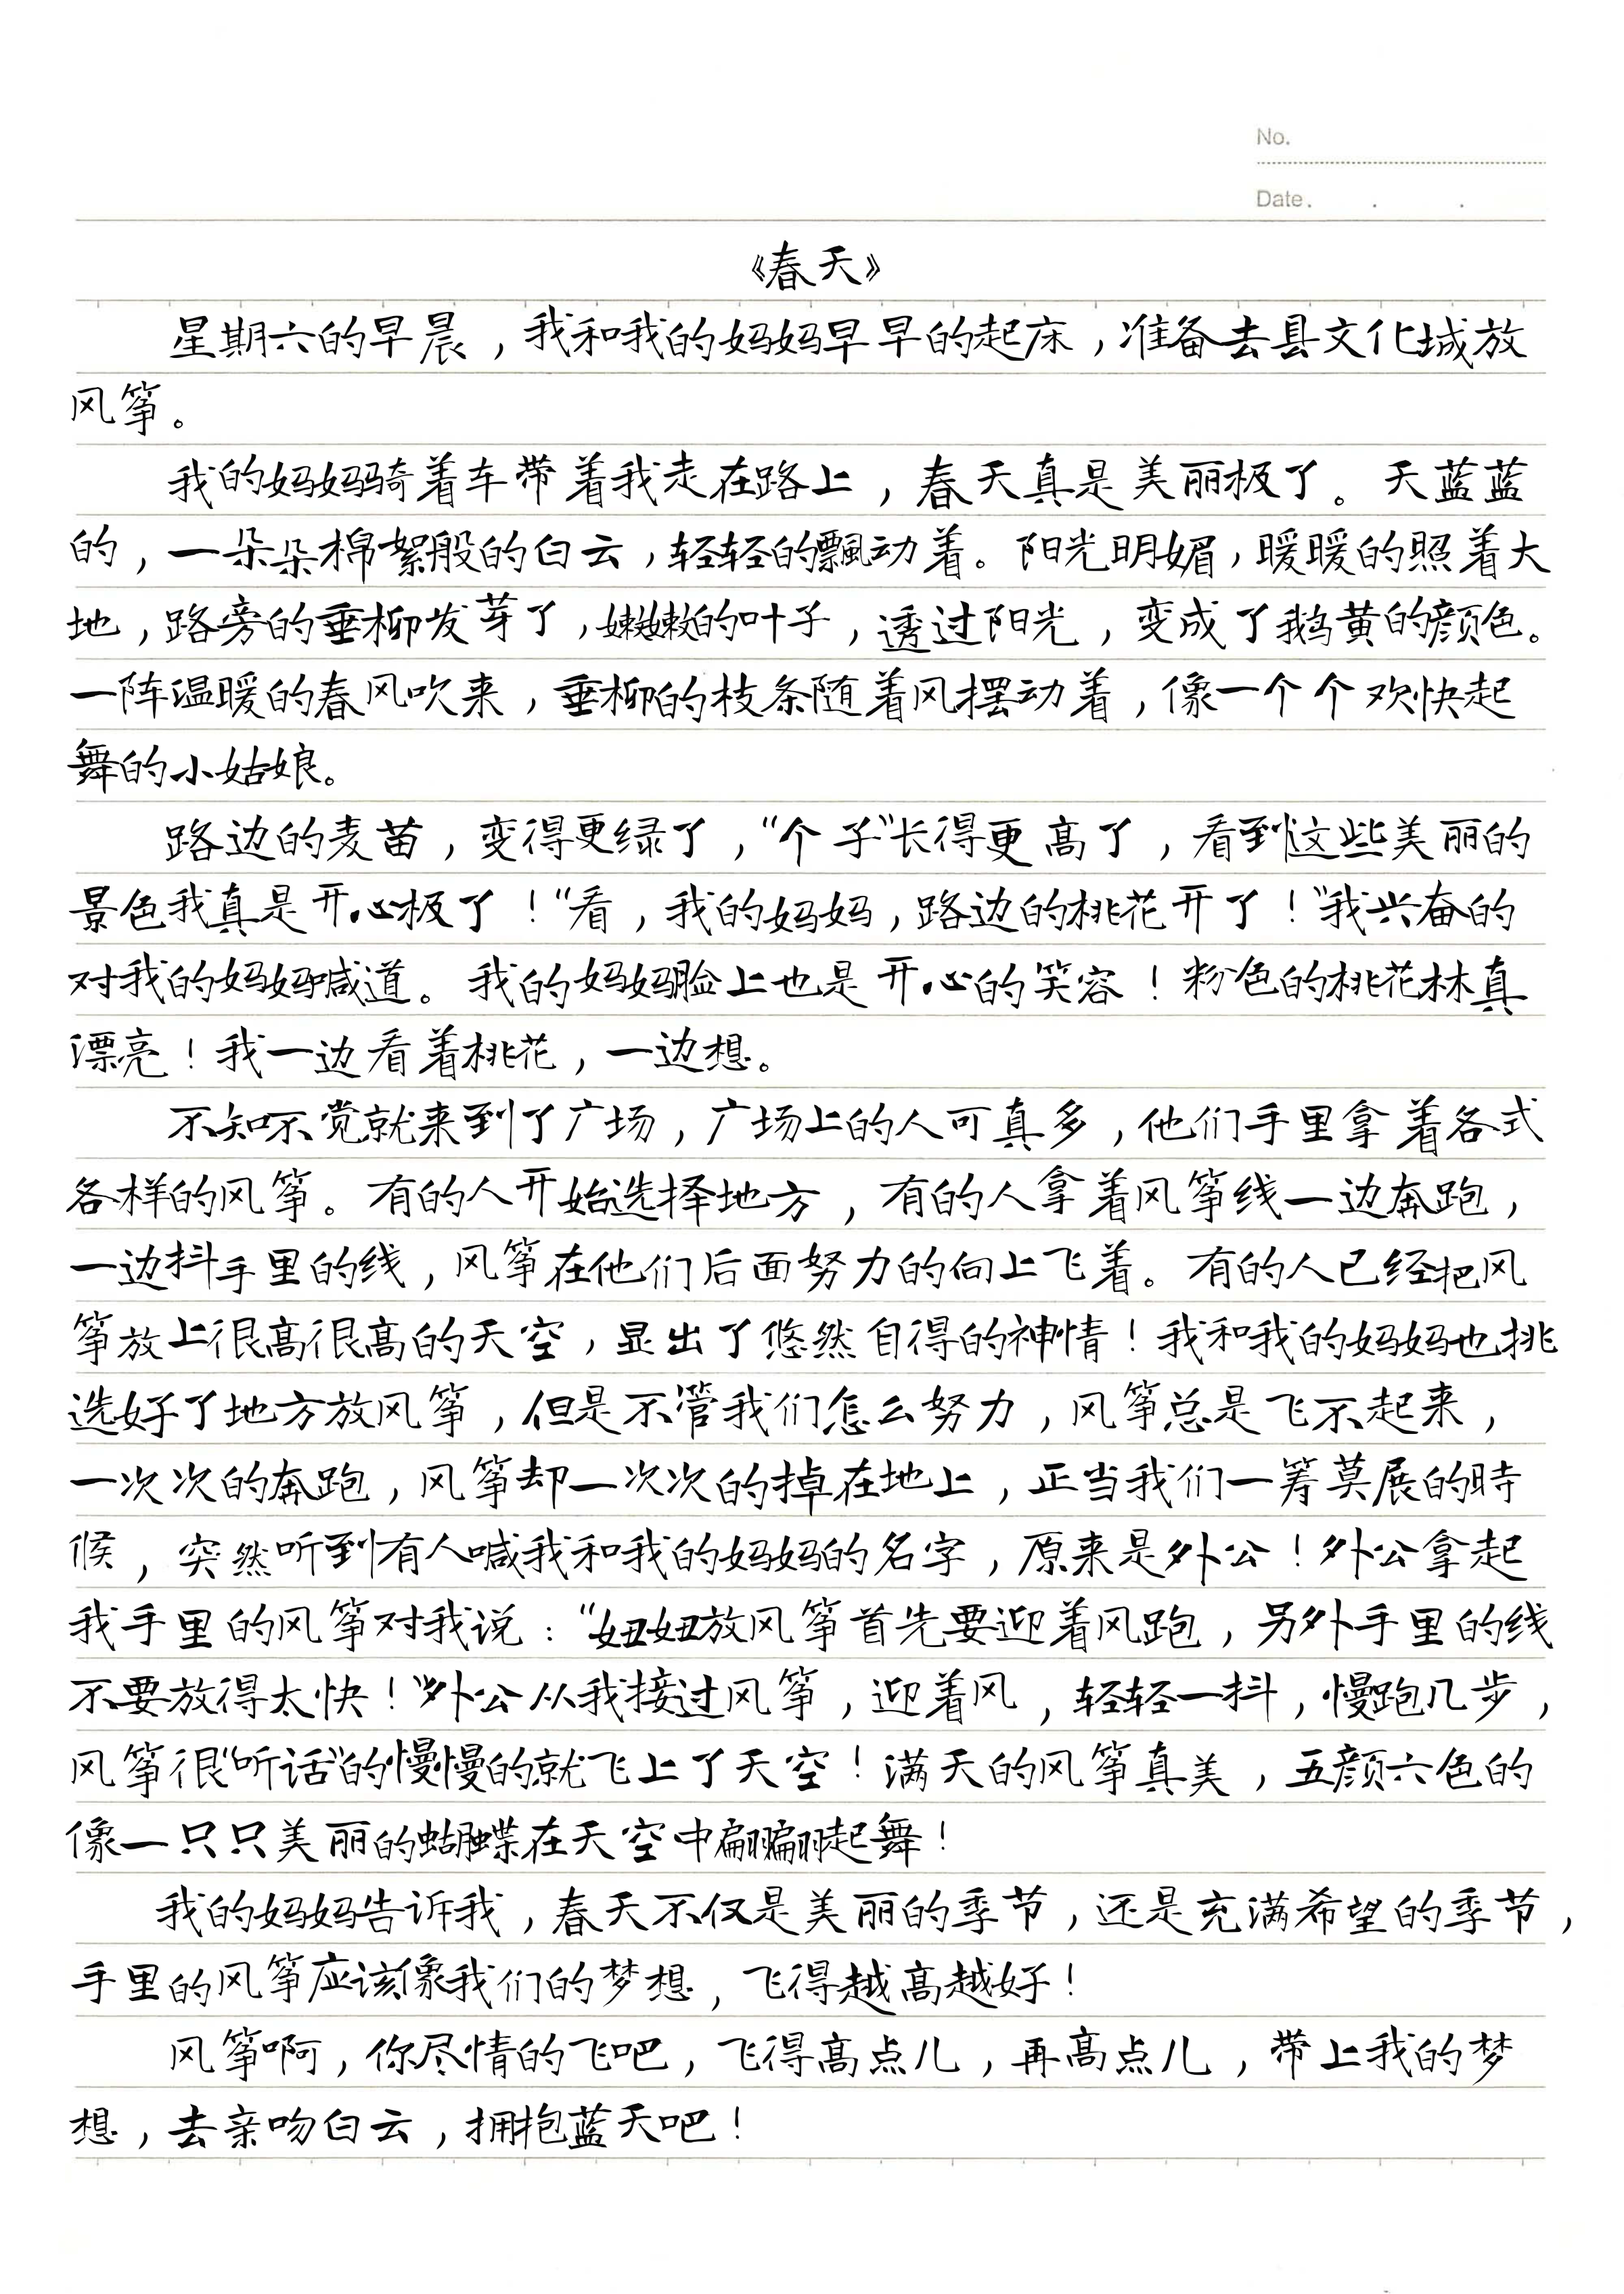 No.
Date.     .     .
《春天》
星期六的早晨，我和我的妈妈早早的起床，准备去县文化城放
风筝。
我的妈妈骑着车带着我走在路上，春天真是美丽极了。天蓝蓝
的，一朵朵棉絮般的白云，轻轻的飘动着。阳光明媚，暖暖的照着大
地，路旁的垂柳发芽了，嫩嫩的叶子，透过阳光，变成了鹅黄的颜色。
一阵温暖的春风吹来，垂柳的枝条随着风摆动着，像一个个欢快起
舞的小姑娘。
路边的麦苗，变得更绿了，“个子”长得更高了，看到这些美丽的
景色我真是开心极了！“看，我的妈妈，路边的桃花开了！”我兴奋的
对我的妈妈喊道。我的妈妈脸上也是开心的笑容！粉色的桃花林真
漂亮！我一边看着桃花，一边想。
不知不觉就来到了广场，广场上的人可真多，他们手里拿着各式
各样的风筝。有的人开始选择地方，有的人拿着风筝线一边奔跑，
一边抖手里的线，风筝在他们后面努力的向上飞着。有的人已经把风
筝放上很高很高的天空，显出了悠然自得的神情！我和我的妈妈也挑
选好了地方放风筝，但是不管我们怎么努力，风筝总是飞不起来，
一次次的奔跑，风筝却一次次的掉在地上，正当我们一筹莫展的時
候，突然听到有人喊我和我的妈妈的名字，原来是外公！外公拿起
我手里的风筝对我说：“妞妞放风筝首先要迎着风跑，另外手里的线
不要放得太快！”外公从我接过风筝，迎着风，轻轻一抖，慢跑几步，
风筝很“听话”的慢慢的就飞上了天空！满天的风筝真美，五颜六色的
像一只只美丽的蝴蝶在天空中翩翩起舞！
我的妈妈告诉我，春天不仅是美丽的季节，还是充满希望的季节，
手里的风筝应该像我们的梦想，飞得越高越好！
风筝啊，你尽情的飞吧，飞得高点儿，再高点儿，带上我的梦
想，去亲吻白云，拥抱蓝天吧！